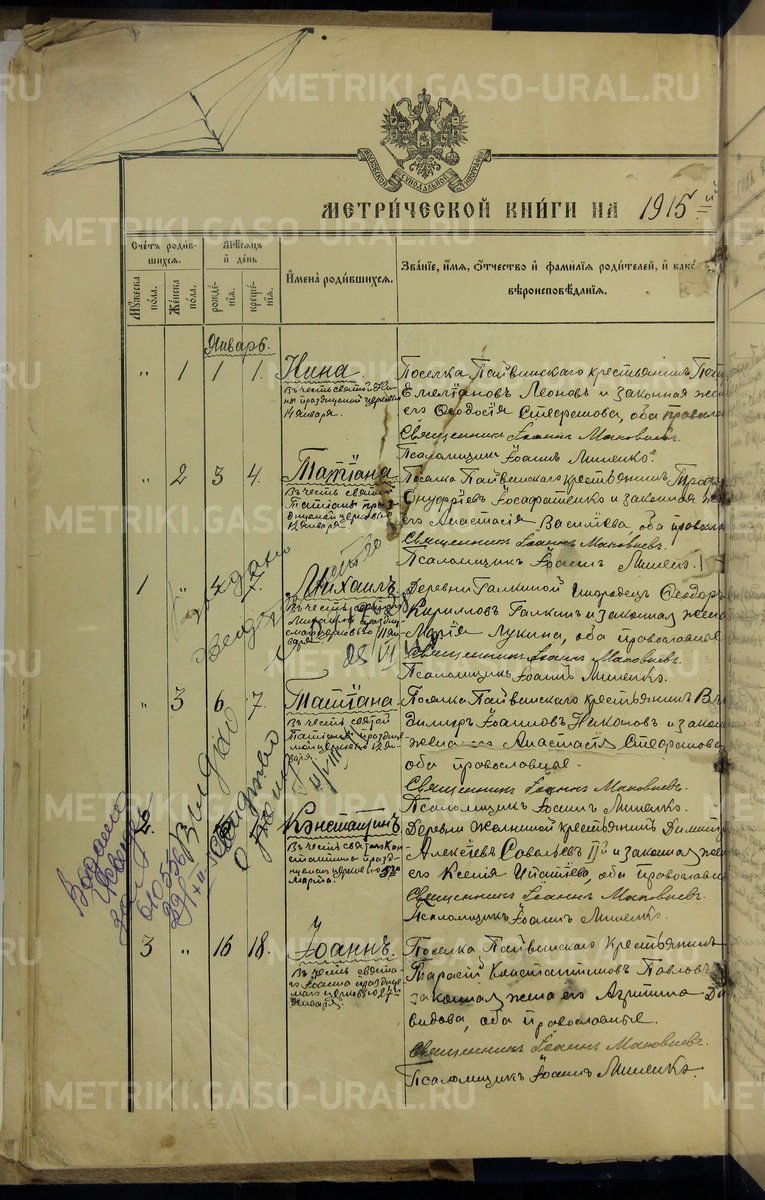 METRIKI.GASO-URAL.RU
МОСКОВСКОЙ СИНОДАЛЬНОЙ ТИПОГРАФІИ
МЕТРИ́ЧЕСКОЙ КНИ́ГИ НА 1915 й
Сче́тъ роди́в-
шихся.
Мѣ́сяцъ
и҆ де́нь
И҆мена̀ роди́вшихся.
Зва́ніе, и҆́мя, ѻ҆́тчество и҆ фами́лїя роди́телей, и҆ како́
вѣроисповѣ́данїя.
Мꙋ́жеска
по́ла.
Же́нска
по́ла.
рожде́-
нїя.
креще́-
нїя.
Январь.
" 1 1 1. Нина.
Въ честь святой Ни-
ны празднуемой церковью
14 января.
Поселка Пайвинскаго крестьянинъ
Емелїановъ Леоновъ и законная же
его Ѳеодосїя Стефанова, оба правосла
Священникъ Іоаннъ Маковѣевъ.
Псаломщикъ Іоаннъ Мишенко.
" 2 3 4. Татїана
Въ честь святой
Татїаны праз-
днуемой церковью
12 января.
Поселка Пайвинскаго крестьянинъ
Онуфрїевъ и законная
его Анастасїя Васильева, оба правосла
Священникъ Іоаннъ Маковѣевъ.
Псаломщикъ Іоаннъ Мишенко.
1 " 4 7. Михаилъ
Въ честь
Михаила праздну-
емаго церковью 11 ян-
варя
Деревни Галкиной инородецъ Ѳеодоръ
Кирилловъ Галкинъ и законная жена
Марїя Лукина, оба православные
Священникъ Іоаннъ Маковѣевъ.
Псаломщикъ Іоаннъ Мишенко.
" 3 6 7. Татїана.
Въ честь святой
Татїаны праздну-
емой церковью 12 ян-
варя.
Поселка Пайвинскаго крестьянинъ Вла
димиръ Іоанновъ Никоновъ и закон
жена его Анастасїя Стефанова
оба православные.
Священникъ Іоаннъ Маковѣевъ.
Псаломщикъ Іоаннъ Мишенко.
2. Константинъ.
Въ честь святаго Кон-
стантина праздну-
емаго церковью
Марта.
Деревни крестьянинъ Димитр
Алексѣевъ Савельевъ IIй и законная же
его Ксенїя Ипатїева, оба православн
Священникъ Іоаннъ Маковѣевъ.
Псаломщикъ Іоаннъ Мишенко.
3 " 16 18. Іоаннъ.
Въ честь свята-
го Іоанна праздну-
емаго церковью 27го
января.
Поселка Пайвинскаго Крестьянинъ
Тарасїй Константиновъ Павловъ
законная жена его Агрипина Да
видова, оба православные.
Священникъ Іоаннъ Маковѣевъ.
Псаломщикъ Іоаннъ Мишенко.
Выдано
свидетельство
010556